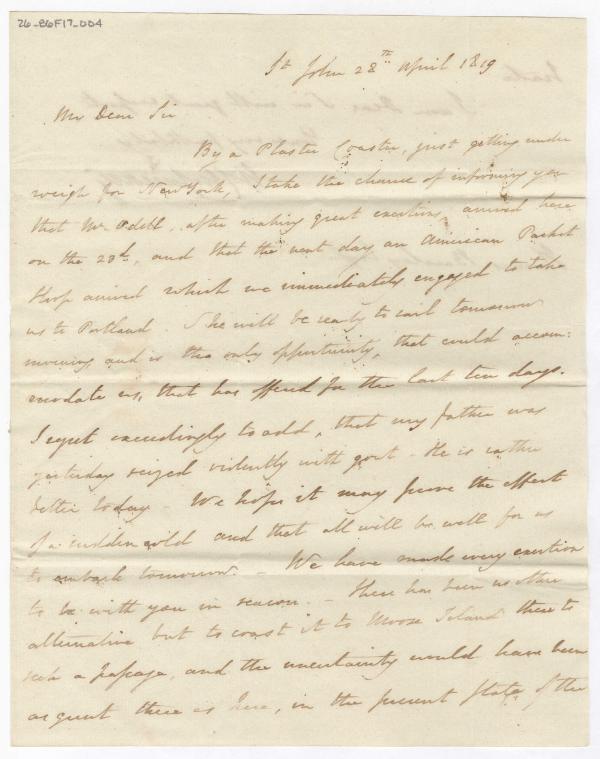 26-86F17-004
St John 28th April 1819
My Dear Sir
By a Plaster Coaster, just getting under
weigh for New York, I take the chance of informing you
that Mr. Odell, after making great exertions, arrived here
on the 23d, and that the next day an American Packet
Sloop arrived which we immediately engaged to take
us to Portland. She will be ready to sail tomorrow
morning, and is the only opportunity, that could accom:
modate us, that has offered for the last ten days.
I regret exceedingly to add, that my father was
yesterday seized violently with gout - He is rather
better today - We hope it may prove the effect
of a sudden cold and that all will be well for us
to embark tomorrow. - We have made every exertion
to be with you in season. - There has been no other
alternative but to coast it to Moose Island there to
seek a passage, and the uncertainty would have been
as great there as here, in the present state of the